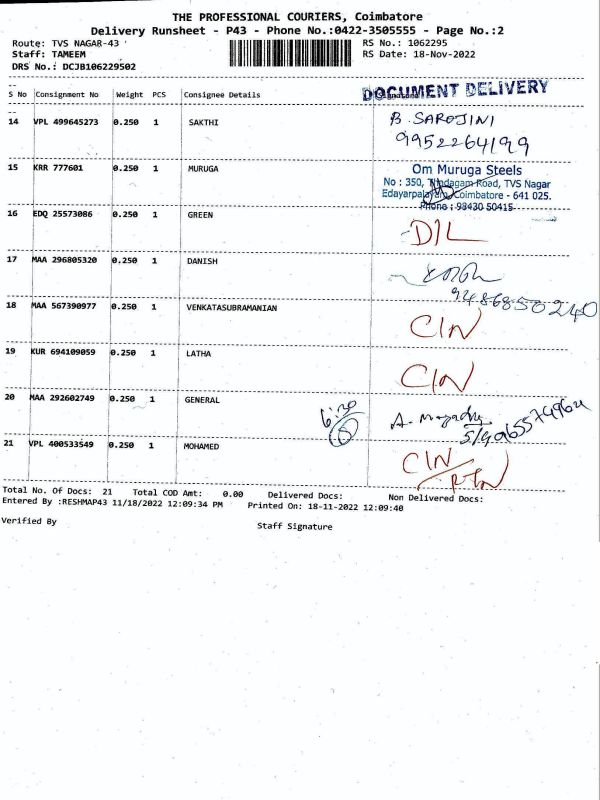 THE PROFESSIONAL COURIERS, Coimbatore
Delivery Runsheet - P43 - Phone No.:0422-3505555 - Page No.:2
Route: TVS NAGAR-43 RS No.: 1062295
Staff: TAMEEM RS Date: 18-Nov-2022
DRS No.: DCJB106229502
DOCUMENT DELIVERY
S No Consignment No Weight PCS Consignee Details
14 VPL 499645273 0.250 1 SAKTHI B. SAROJINI
9952264199
15 KRR 777601 0.250 1 MURUGA Om Muruga Steels
No : 350, Road, TVS Nagar
Coimbatore - 641 025.
Phone : 98430 50415
16 EDQ 25573086 0.250 1 GREEN D/L
17 MAA 296805320 0.250 1 DANISH
9486850240
18 MAA 567390977 0.250 1 VENKATASUBRAMANIAN C/N
19 KUR 694109059 0.250 1 LATHA C/N
20 MAA 292602749 0.250 1 GENERAL 6:30 A.
21 VPL 400533549 0.250 1 MOHAMED C/N
Total No. Of Docs: 21 Total COD Amt: 0.00 Delivered Docs: Non Delivered Docs:
Entered By :RESHMAP43 11/18/2022 12:09:34 PM Printed On: 18-11-2022 12:09:40
Verified By Staff Signature